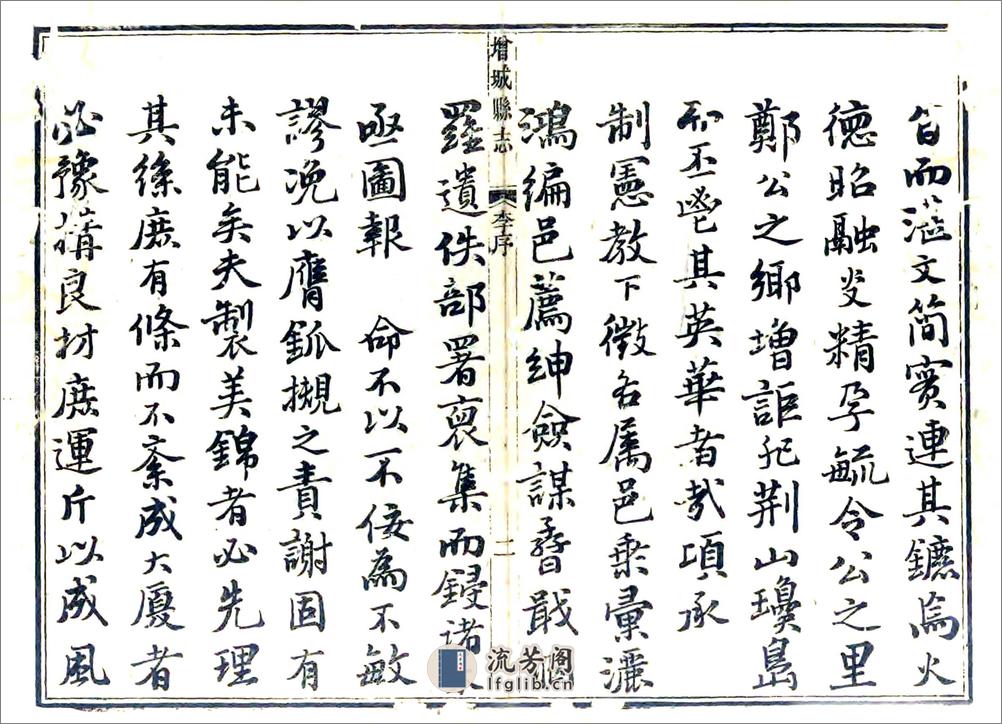 而溢文簡實連其鑣為火
德昭融炎精孕毓令公之里
鄭公之鄉增詎非荆山瓊島
而丕鬯其英華者哉項承
制憲教下徵各属邑乘彙灑
鴻編邑薦紳僉謀䜟
羅遺佚部署裒集而鋟諸
亟圖報 命不以一不佞為不敏
謬浼以膺觚槻之責謝固有
未能矣夫製美錦者必先理
其絲庶有條而不紊成大廈者
必豫構良材庶運斤以成風
增城縣志
李序
二
流芳阁
lfglib.cn